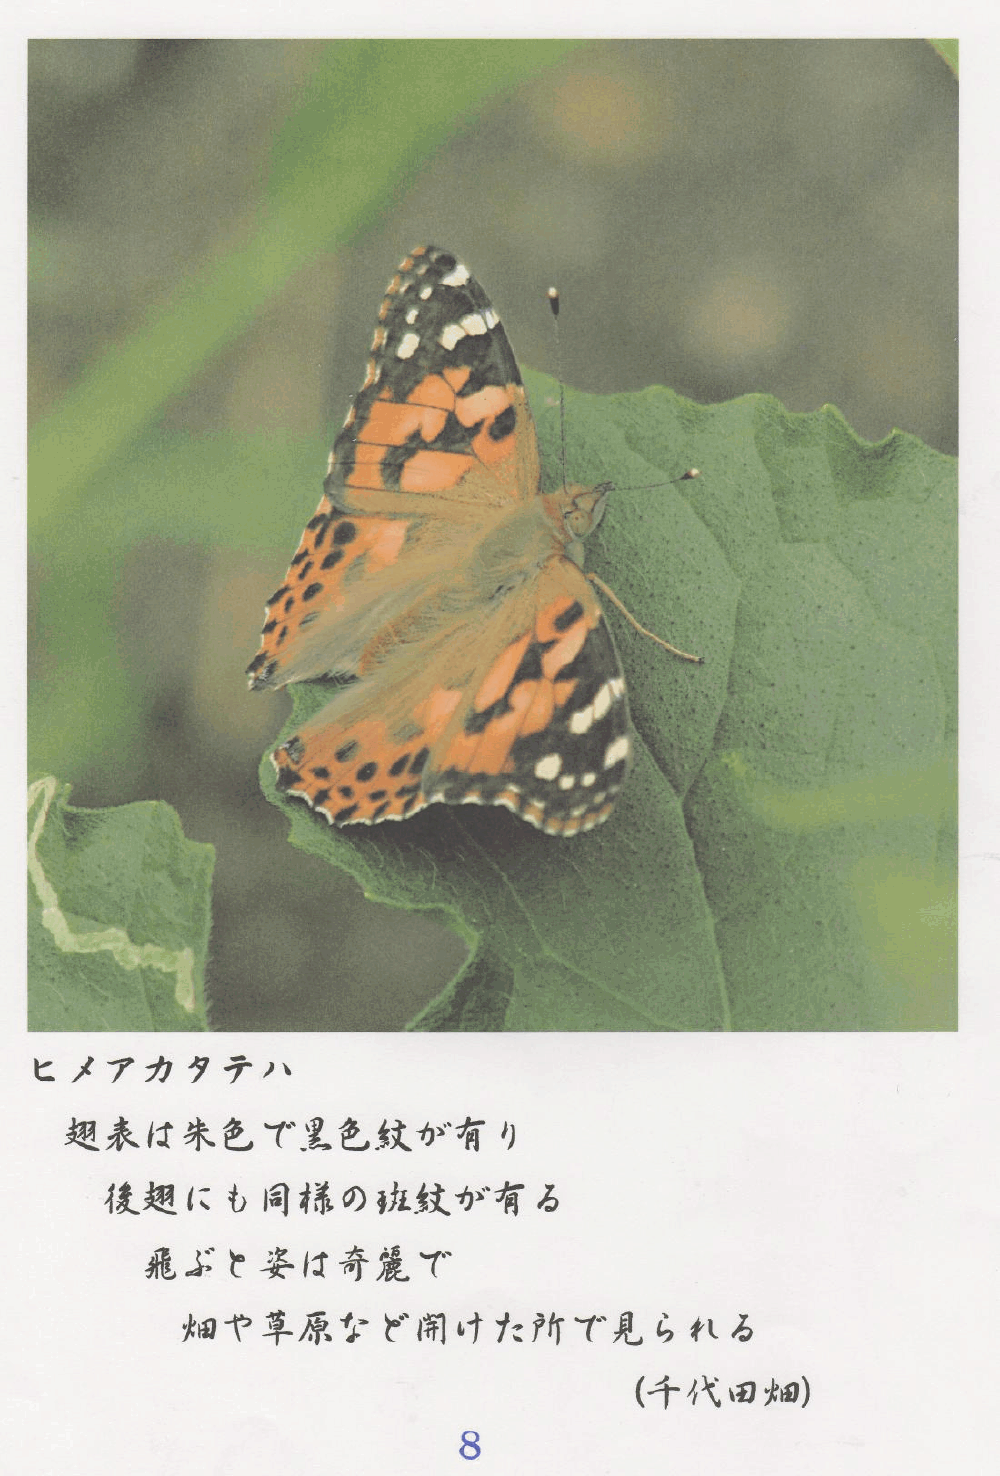 ヒメアカタテハ
翅表は朱色で黒色紋が有り
後翅にも同様の斑紋が有る
飛ぶと姿は奇麗で
畑や草原など開けた所で見られる
(千代田畑)
8